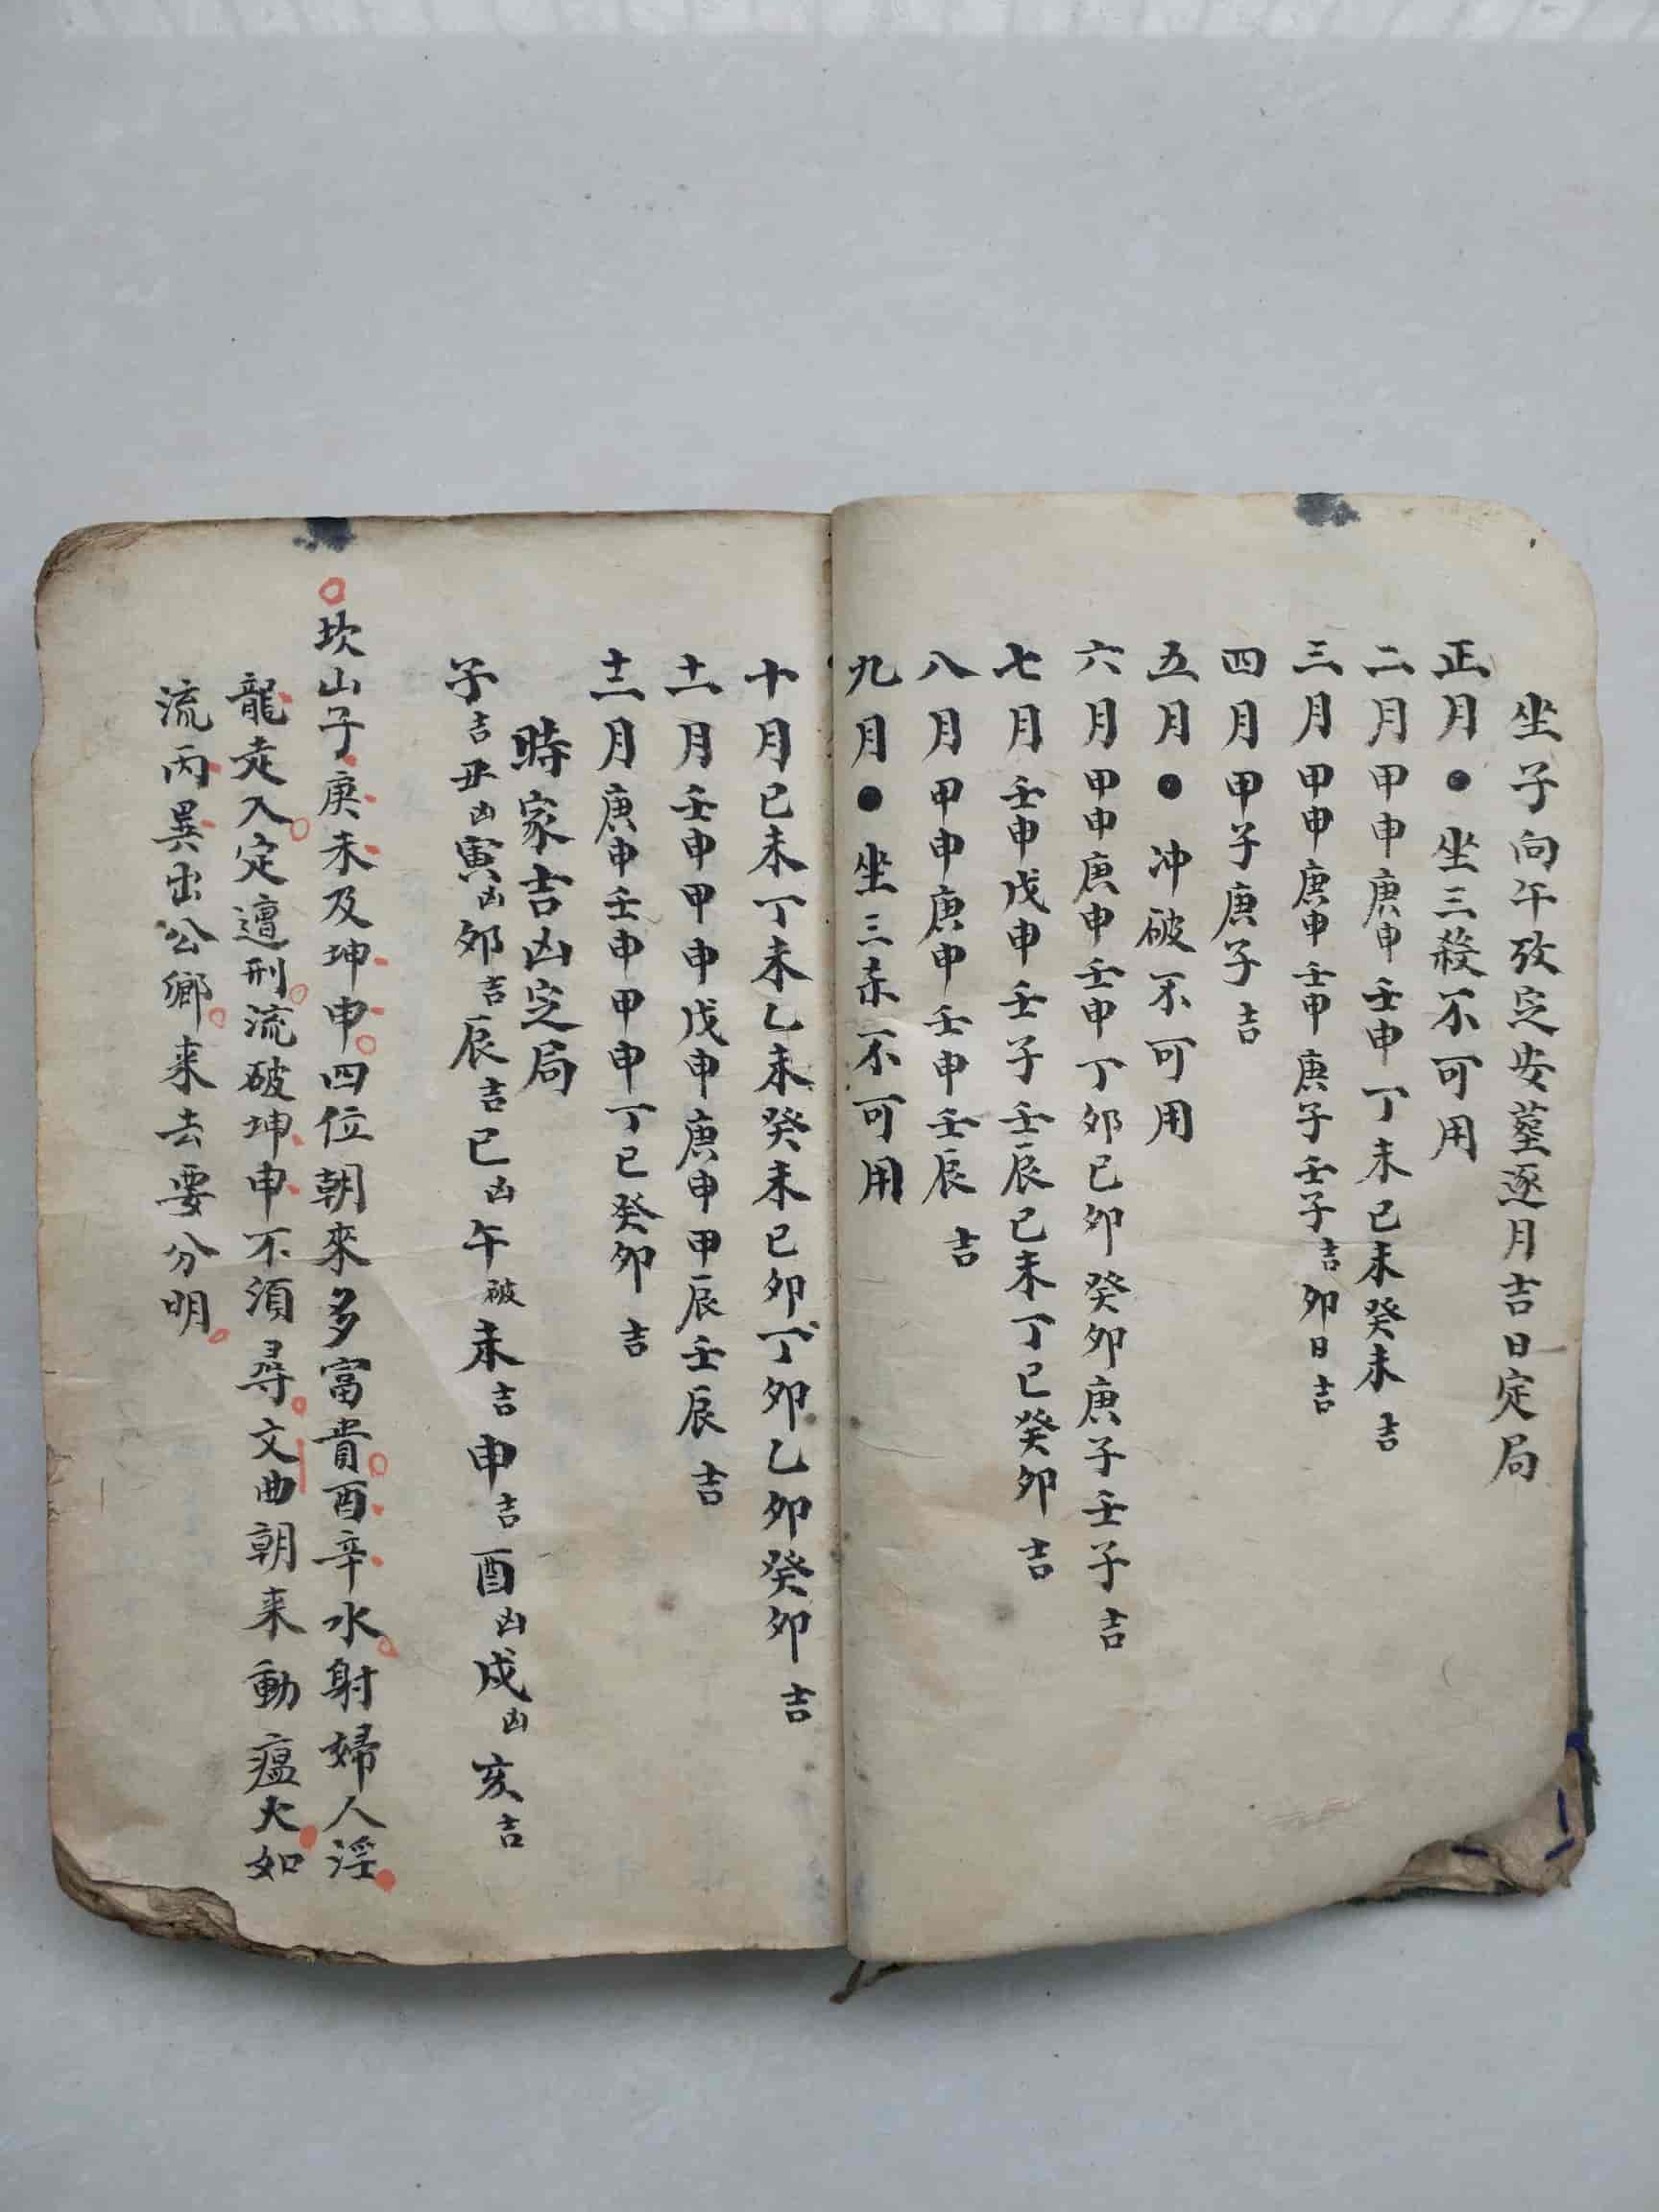 坐子向午攷定安葬逐月吉日定局
正月●坐三殺不可用
二月甲申庚申壬申丁未己未癸未吉
三月甲申庚申壬申庚子壬子吉卯日吉
四月甲子庚子吉
五月●冲破不可用
六月甲申庚申壬申丁卯己卯癸卯庚子壬子吉
七月壬申戊申壬子壬辰己未丁巳癸卯吉
八月甲申庚申壬申壬辰吉
九月●坐三未不可用
十月己未丁未乙未癸未己卯丁卯乙卯癸卯吉
十一月壬申甲申戊申庚申甲辰壬辰吉
十二月庚申壬申甲申丁巳癸卯吉
時家吉凶定局
子吉丑凶寅凶卯吉辰吉巳凶午破未吉申吉酉凶戌凶亥吉
坎山子庚未及坤申四位朝來多富貴酉辛水射婦人淫
龍走入定遭刑流破坤申不須尋文曲朝来動瘟火如
流丙異出公鄉来去要分明